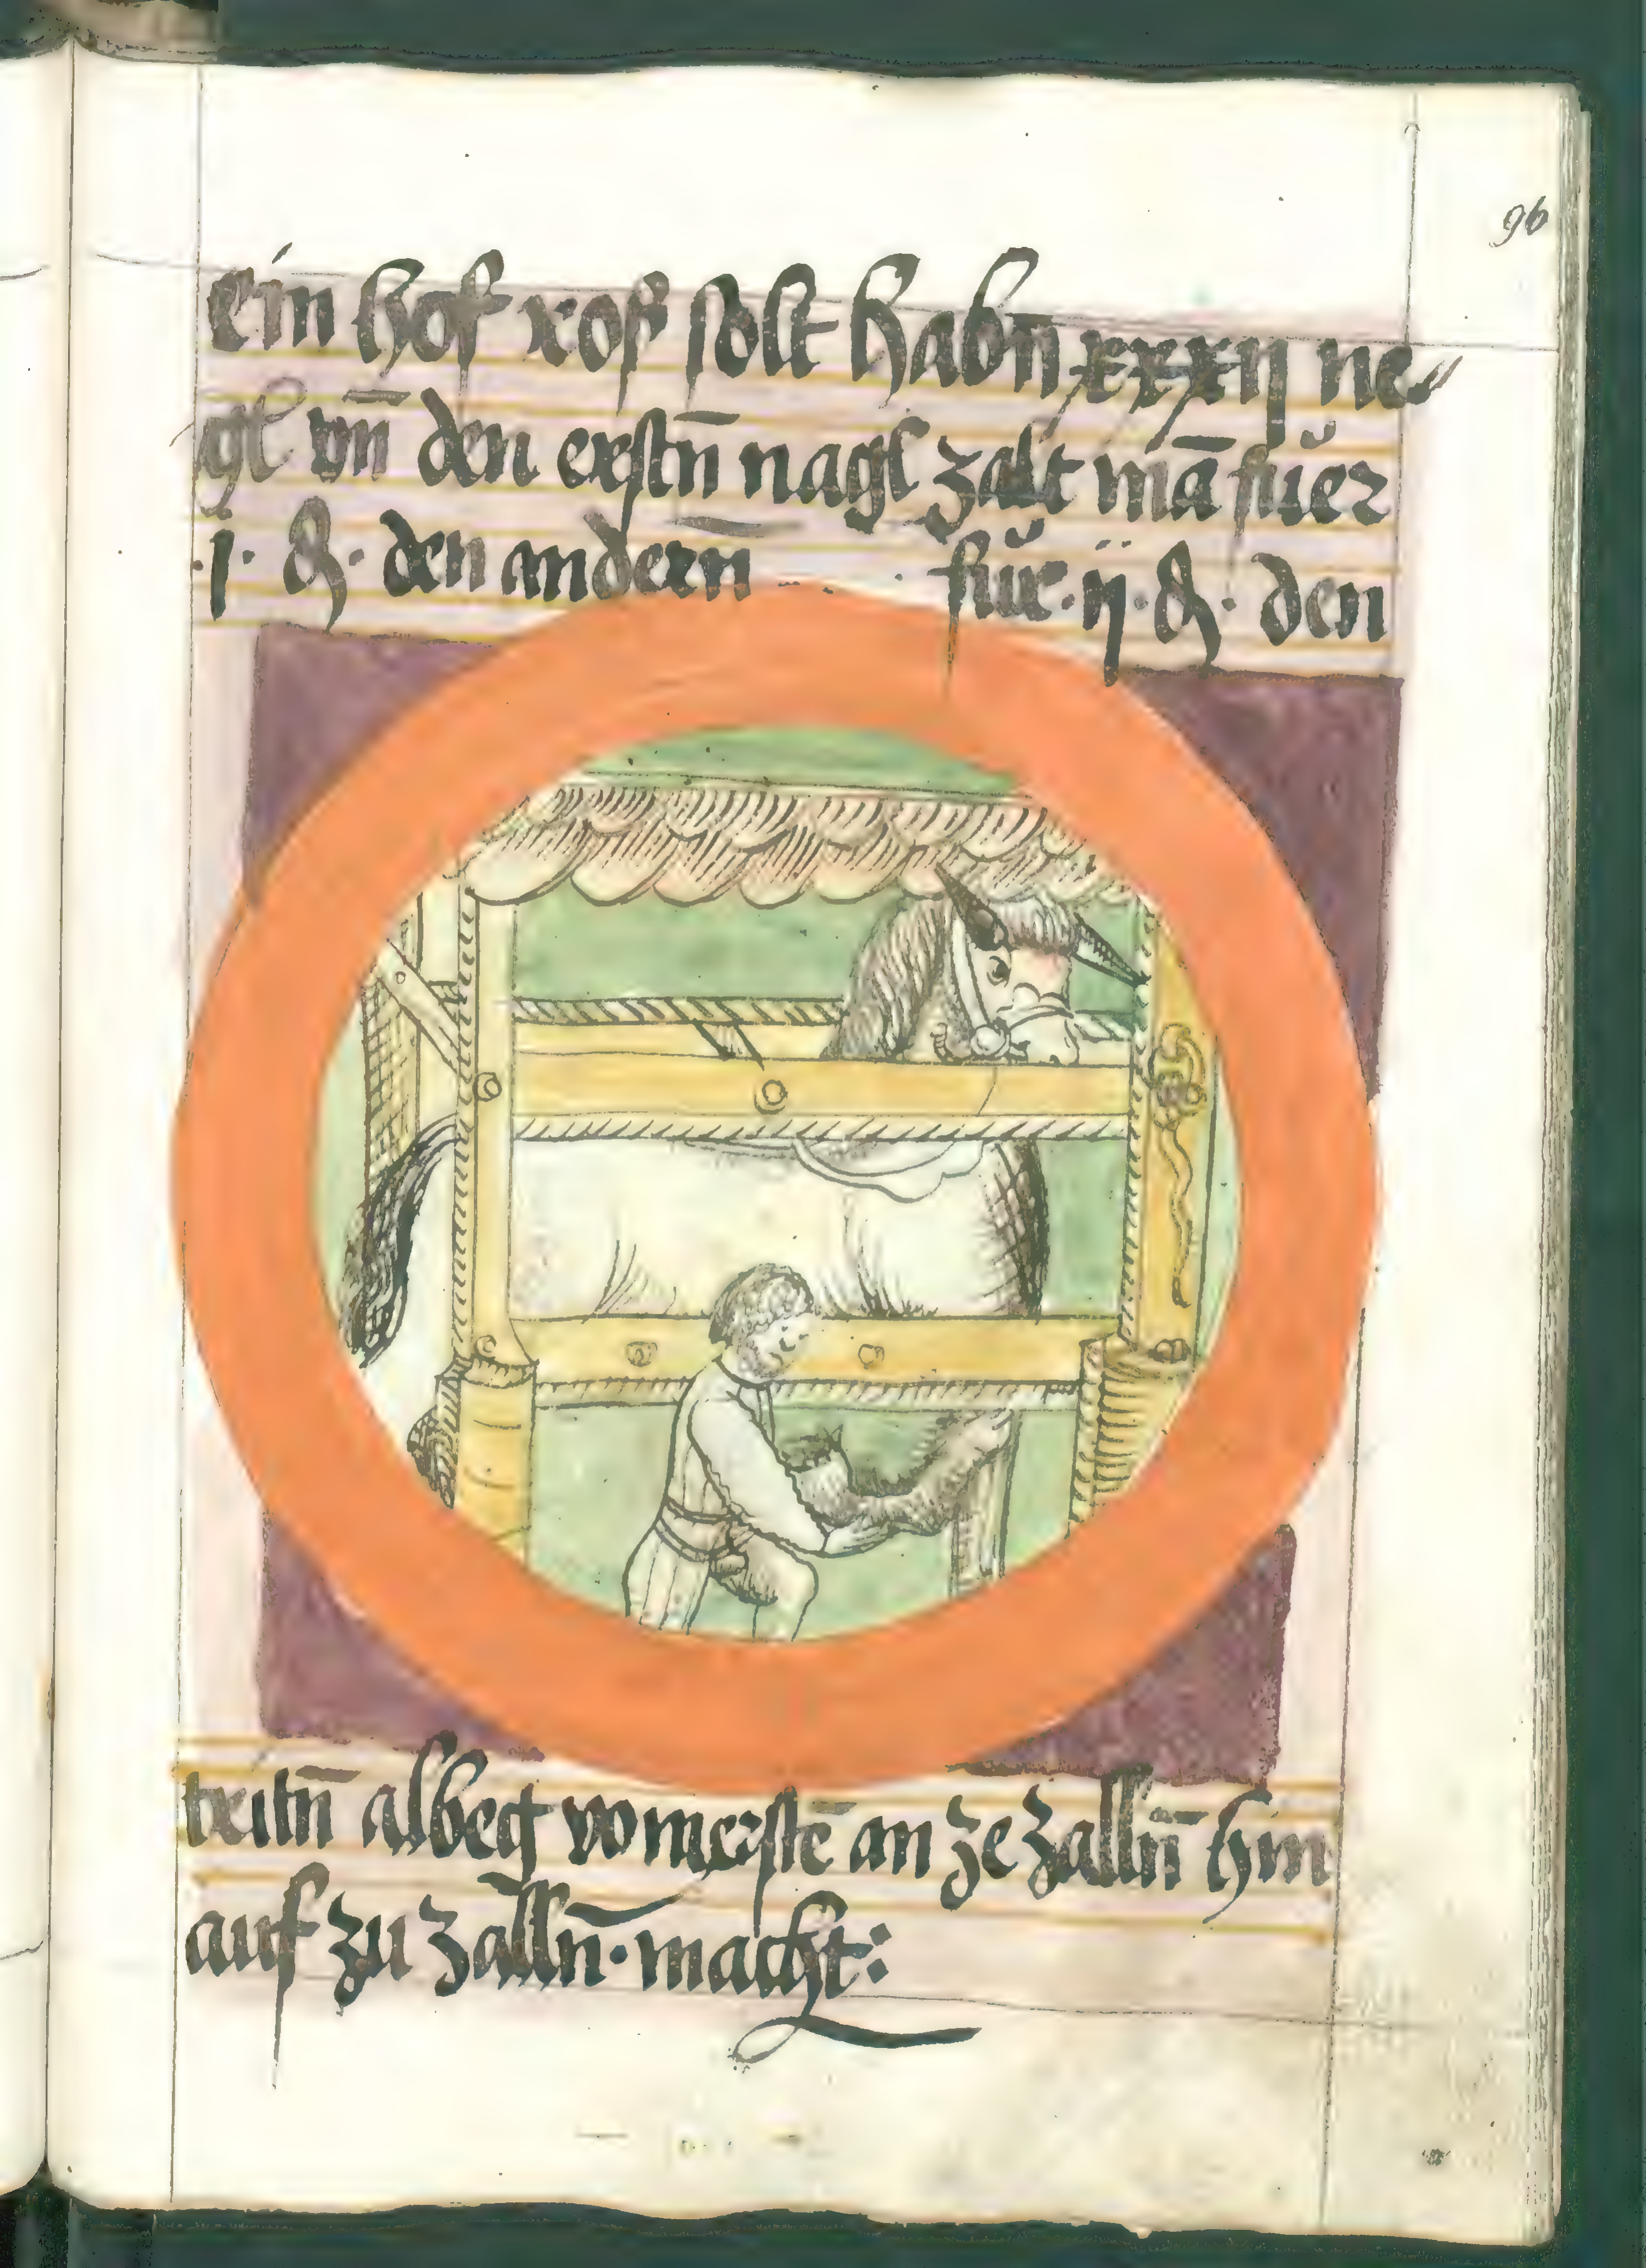 96
ein hof ros solt habn̄ xxxij ne⸗
gl vn̄ den erstn̄ nagl zalt mā fuer
.j. ₰. den andern̄ fur .ij. ₰. den
dritn̄ albeg vom erstē an ze zalln̄ hin
auf zu zalln̄. macht: